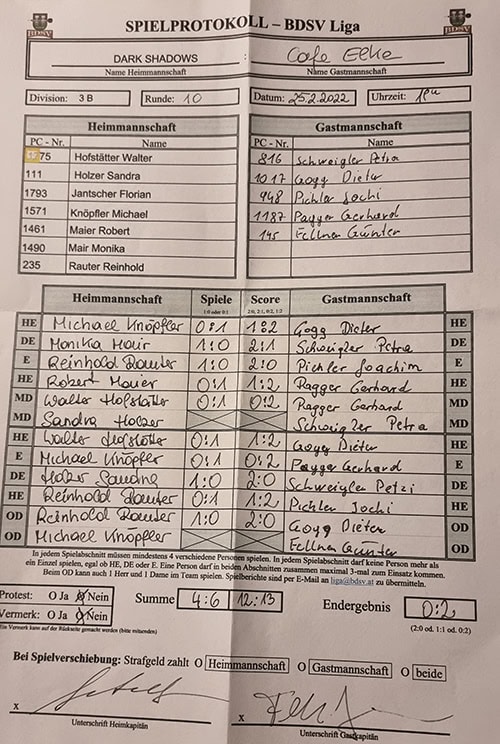 SPIELPROTOKOLL – BDSV Liga
BDSV BDSV
DARK SHADOWS : Cafe Elke
Name Heimmannschaft Name Gastmannschaft
Division: 3 B Runde: 10 Datum: 25.2.2022 Uhrzeit:
Heimmannschaft Gastmannschaft
PC - Nr. Name PC - Nr. Name
75 Hofstätter Walter 816 Schweigler Petra
111 Holzer Sandra 1017 Gogg Dieter
1793 Jantscher Florian 948 Pichler Jochi
1571 Knöpfler Michael 1187 Pagger Gerhard
1461 Maier Robert 145 Fellner Günter
1490 Mair Monika
235 Rauter Reinhold
Heimmannschaft Spiele Score Gastmannschaft
1:0 oder 0:1 2:0, 2:1, 0:2, 1:2
HE Michael Knöpfler 0:1 1:2 Gogg Dieter HE
DE Monika Mair 1:0 2:1 Schweigler Petra DE
E Reinhold Rauter 1:0 2:0 Pichler Joachim E
HE Robert Maier 0:1 1:2 Pagger Gerhard HE
MD Walter Hofstätter 0:1 0:2 Pagger Gerhard MD
MD Sandra Holzer Schweigler Petra MD
HE Walter Hofstätter 0:1 1:2 Gogg Dieter HE
E Michael Knöpfler 0:1 0:2 Pagger Gerhard E
DE Holzer Sandra 1:0 2:0 Schweigler Petzi DE
HE Reinhold Rauter 0:1 1:2 Pichler Jochi HE
OD Reinhold Rauter 1:0 2:0 Gogg Dieter OD
OD Michael Knöpfler Fellner Günter OD
In jedem Spielabschnitt müssen mindestens 4 verschiedene Personen spielen. In jedem Spielabschnitt darf keine Person mehr als
ein Einzel spielen, egal ob HE, DE oder E. Eine Person darf in beiden Abschnitten zusammen maximal 3-mal zum Einsatz kommen.
Beim OD kann auch 1 Herr und 1 Dame im Team spielen. Spielberichte sind per E-Mail an liga@bdsv.at zu übermitteln.
Protest: O Ja O Nein Summe 4:6 12:13 Endergebnis 0:2
Vermerk: O Ja O Nein (2:0 od. 1:1 od. 0:2)
Ein Vermerk kann auf der Rückseite gemacht werden (bitte mitsenden)
Bei Spielverschiebung: Strafgeld zahlt O Heimmannschaft O Gastmannschaft O beide
x x
Unterschrift Heimkapitän Unterschrift Gastkapitän